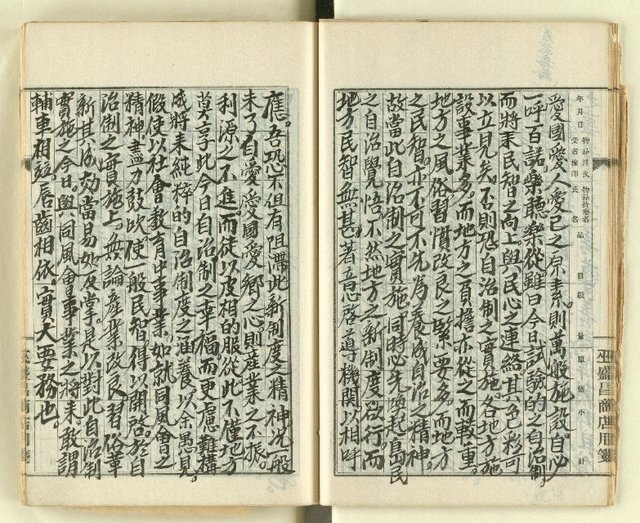 愛國愛人愛己之原素則萬般施設自必
一呼百諾樂聽樂從雖曰今日試驗的之自治制
而將來民智之向上與民心之連絡其色彩可
以立見矣否則恐自治制之實施各地方施
設事業多而地方之負擔亦從之而較重
地方之風俗習慣改良之緊要多而地方
之民智亦不可不先為養成自治之精神
故當此自治制之實施同時必先喚起島民
之自治覺悟不然地方之新制度啟行而
地方民智無甚著意啟導機關以相呼
應。吾恐不徂有阻滯此新制度之精神况一般
未了自愛愛國愛鄉之心則產業之不振。
利源之不進而徒以皮相的服從此不僅地方
莫享此今日自治制之幸福而更慮難搆
成將來純粹的自治制度之涵養以余愚見
假使以社會教育中事業如就同風會之
精神盡力鼓吹使一般民智得以開啓於自
治制之實施上無論產業改良習俗革
新其成効當易如反掌是以對此自治制
實施之今日與同風會事業之將來敢謂
輔車相kind唇齒相依實大要務也。
年 月 日
物品
氏 名
品 目
數 量
單 價
小 計